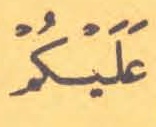 عَلَيْكُمْ